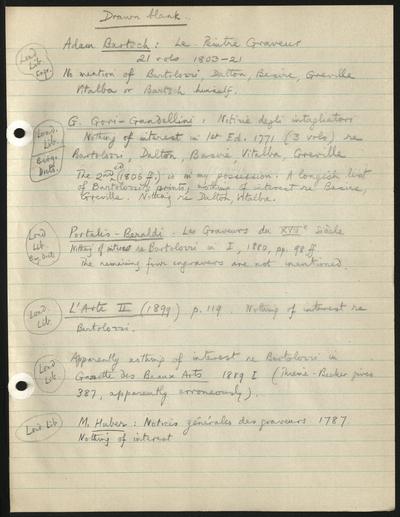 Drawn blank.
Lond. Lib. Engr.
Adam Bartsch: Le Peintre Graveur
21 vols 1803-21
No mention of Bartolozzi, Dalton, Basire, Greville
Vitalba or Bartsch himself.
Lond. Lib. Biogr. Dicts.
G. Gori-Gandellini: Notizie degli intagliatori
Nothing of interest in 1st Ed. 1771 (3 vols) re
Bartolozzi, Dalton, Basire, Vitalba, Greville
The 2nd ed (1808 ff.) is in my possession. A longish list
of Bartolozzi prints, nothing of interest re Basire,
Greville. Nothing re Dalton, Vitalba.
Lond. Lib.
Portalis-Beraldi. Les Graveurs du siècle
Nothing of interest re Bartolozzi in I, 1880, pp. 98 ff.
The remaining four engravers are not mentioned.
Lond. Lib.
L'Arte II (1899) p. 119. Nothing of interest re
Bartolozzi.
Lond. Lib.
Apparently nothing of interest re Bartolozzi in
Gazette des Beaux Arts 1889 I (Thieme-Becker gives
387, apparently erroneously).
Lond Lib
M. Huber: Notices générales des graveurs 1787
Nothing of interest